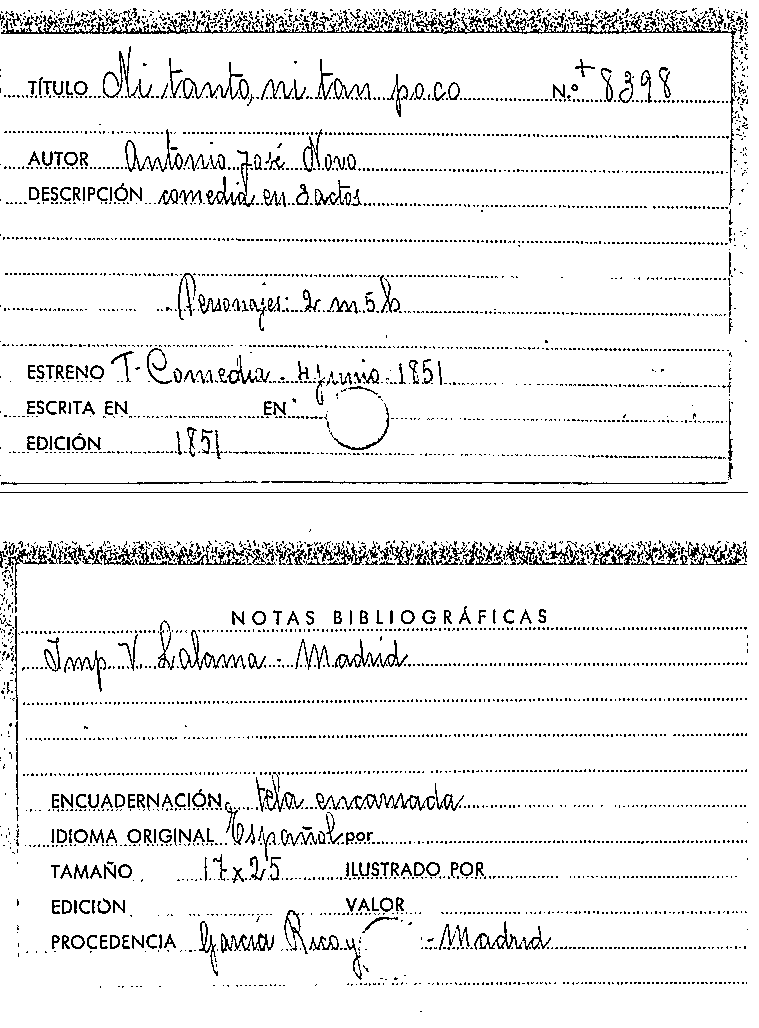 TÍTULO Ni tanto, ni tan poco N.º + 8398
AUTOR Antonio José Novo
DESCRIPCIÓN comedia en 3 actos
Personajes: 2 m 5 h
ESTRENO T. Comedia - 4 junio 1851
ESCRITA EN EN
EDICIÓN 1851
NOTAS BIBLIOGRÁFICAS
Imp V. Lalama - Madrid
ENCUADERNACIÓN tela encarnada
IDIOMA ORIGINAL Español por
TAMAÑO 17 x 25 ILUSTRADO POR
EDICIÓN VALOR
PROCEDENCIA García Rico y - Madrid